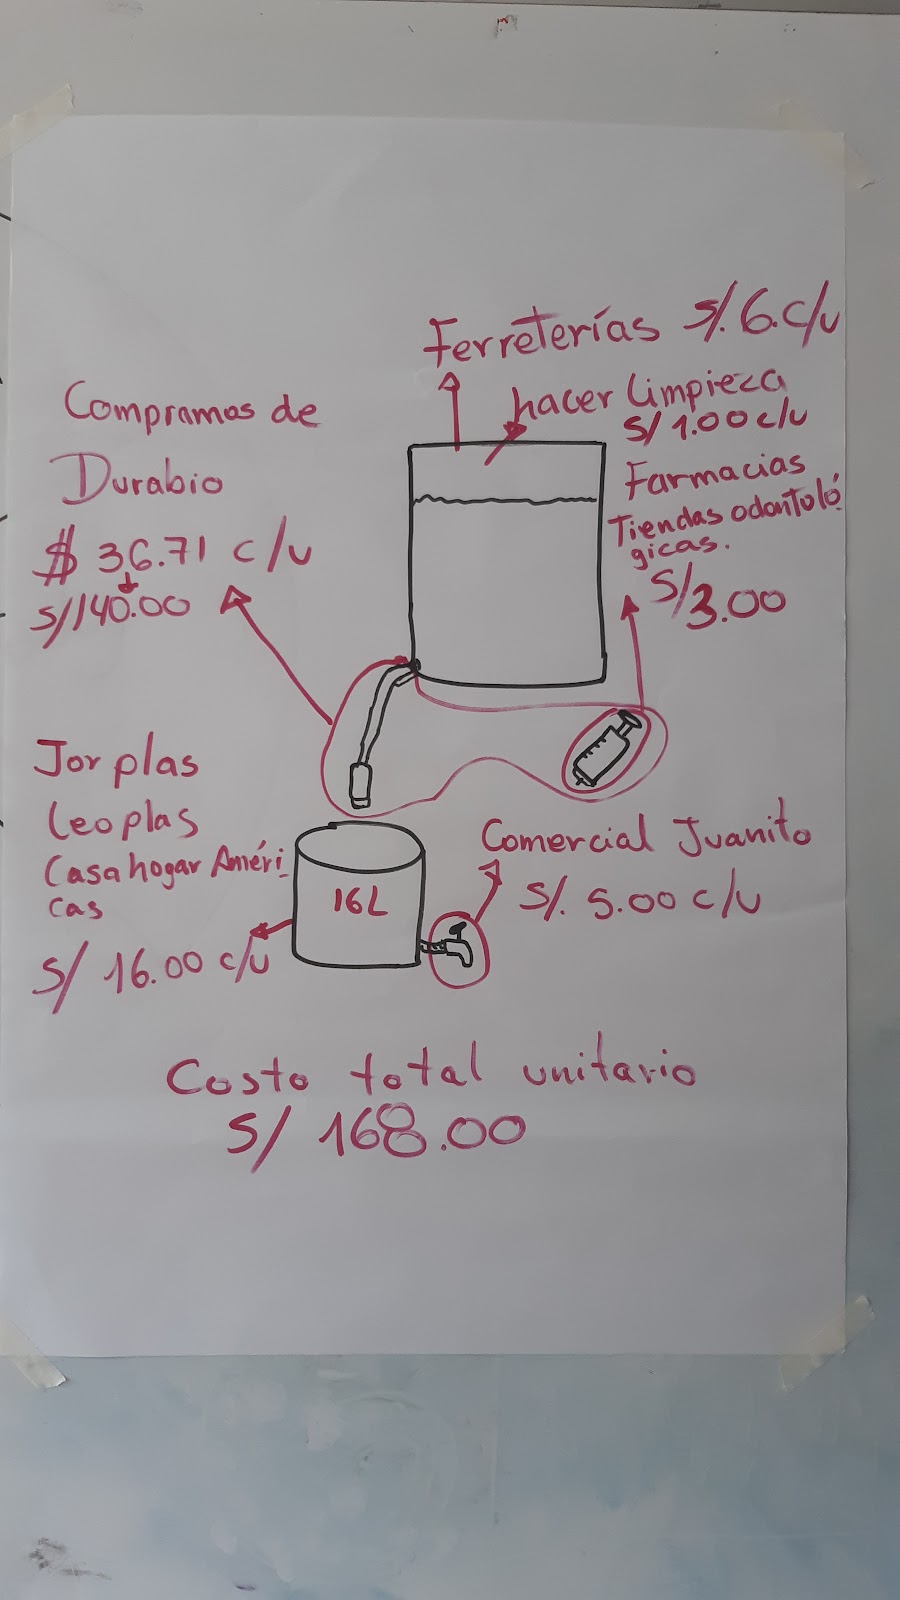 Ferreterías S/. 6. c/u
hacer limpieza
S/ 1.00 c/u
Compramos de
Durabio
$ 36.71 c/u
S/140.00
Farmacias
Tiendas odontoló
gicas.
S/3.00
Jor plas
Leoplas
Casahogar Améri
cas
S/ 16.00 c/u
16L
Comercial Juanito
S/. 5.00 c/u
Costo total unitario
S/ 168.00